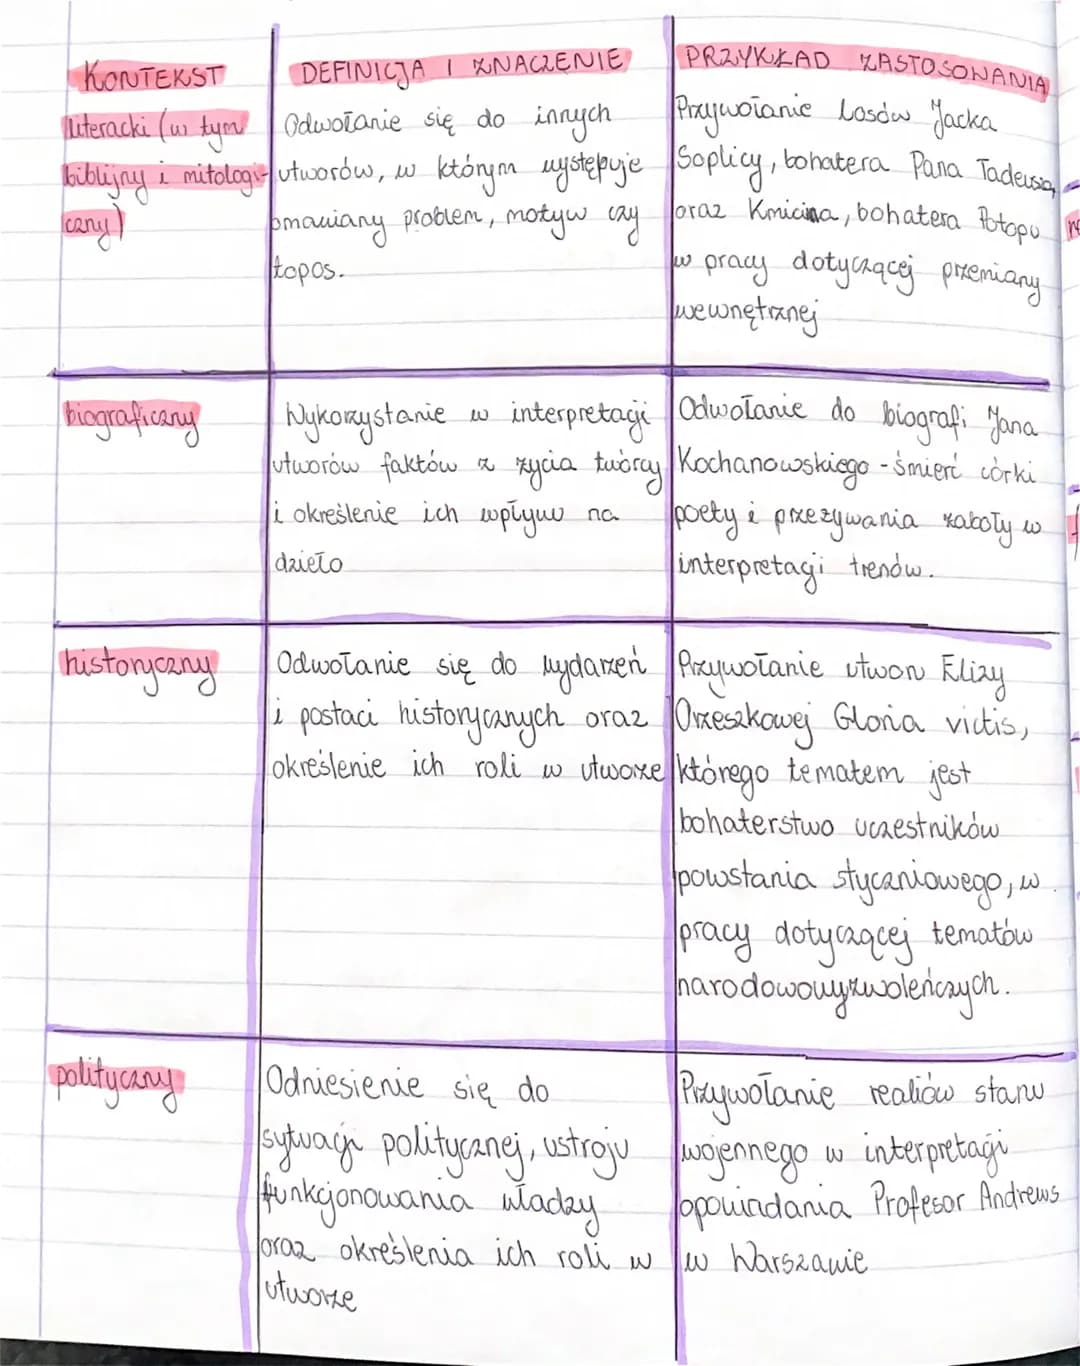 KONTEKST
DEFINICJA I ZNACZENIE
PRZYKŁAD ZASTOSOWANIA
literacki (w tym
biblijny i mitologi-
czny)
Odwołanie się do innych
utworów, w którym występuje
omawiany problem, motyw czy
topos.
Przywołanie losów Jacka
Soplicy, bohatera Pana Tadeusza,
oraz Kmicica, bohatera Potopu
w pracy dotyczącej przemiany
wewnętrznej
biograficzny
Wykorzystanie w interpretacji
utworów faktów z życia twórcy
i określenie ich wpływu na
dzieło
Odwołanie do biografi Jana
Kochanowskiego - śmierć córki
poety i przeżywania żałoby w
interpretacji trenów.
historyczny
Odwołanie się do wydarzeń
i postaci historycznych oraz
określenie ich roli w utworze
Przywołanie utworu Elizy
Orzeszkowej Gloria victis,
którego tematem jest
bohaterstwo uczestników
powstania styczniowego, w
pracy dotyczącej tematów
narodowowyzwoleńczych.
polityczny
Odniesienie się do
sytuacji politycznej, ustroju
funkcjonowania władzy
oraz określenia ich roli w
utworze
Przywołanie realiów stanu
wojennego w interpretacji
opowiadania Profesor Andrews
w Warszawie